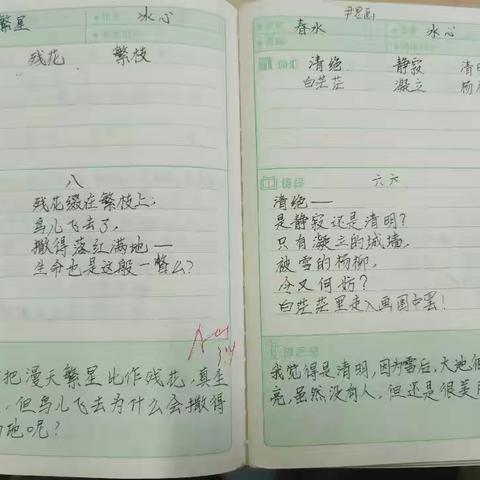 繁星
冰心
残花 繁枝
八
残花缀在繁枝上；
鸟儿飞去了，
撒得落红满地——
生命也是这般一瞥么？
3.4
把漫天繁星比作残花，真生
，但鸟儿飞去为什么会撒得
地呢？
春水
冰心
词汇 清绝 静寂
白茫茫 凝立 杨
六六
清绝——
是静寂还是清明？
只有凝立的城墙，
被雪的杨柳，
冷又何妨？
白茫茫里走入画图中罢！
我觉得是清明，因为雪后，大地
亮，虽然没有人，但还是很美